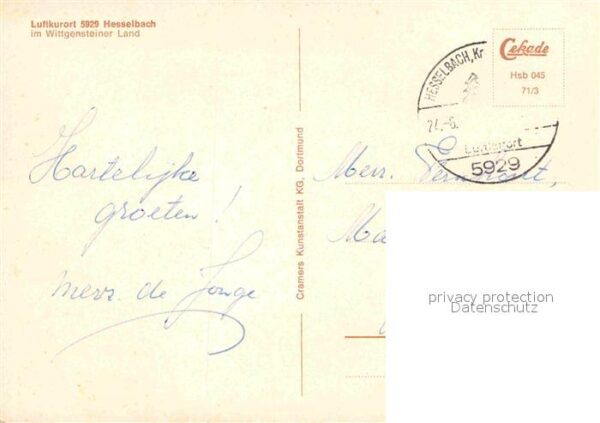 Luftkurort 5929 Hesselbach
im Wittgensteiner Land
Cekade
Hsb 045
71/3
HESSELBACH, Kr
Luftkurort
5929
Hartelijke
groeten!
mevr. de Jonge
Cramers Kunstanstalt KG, Dortmund
Mevr.
privacy protection
Datenschutz